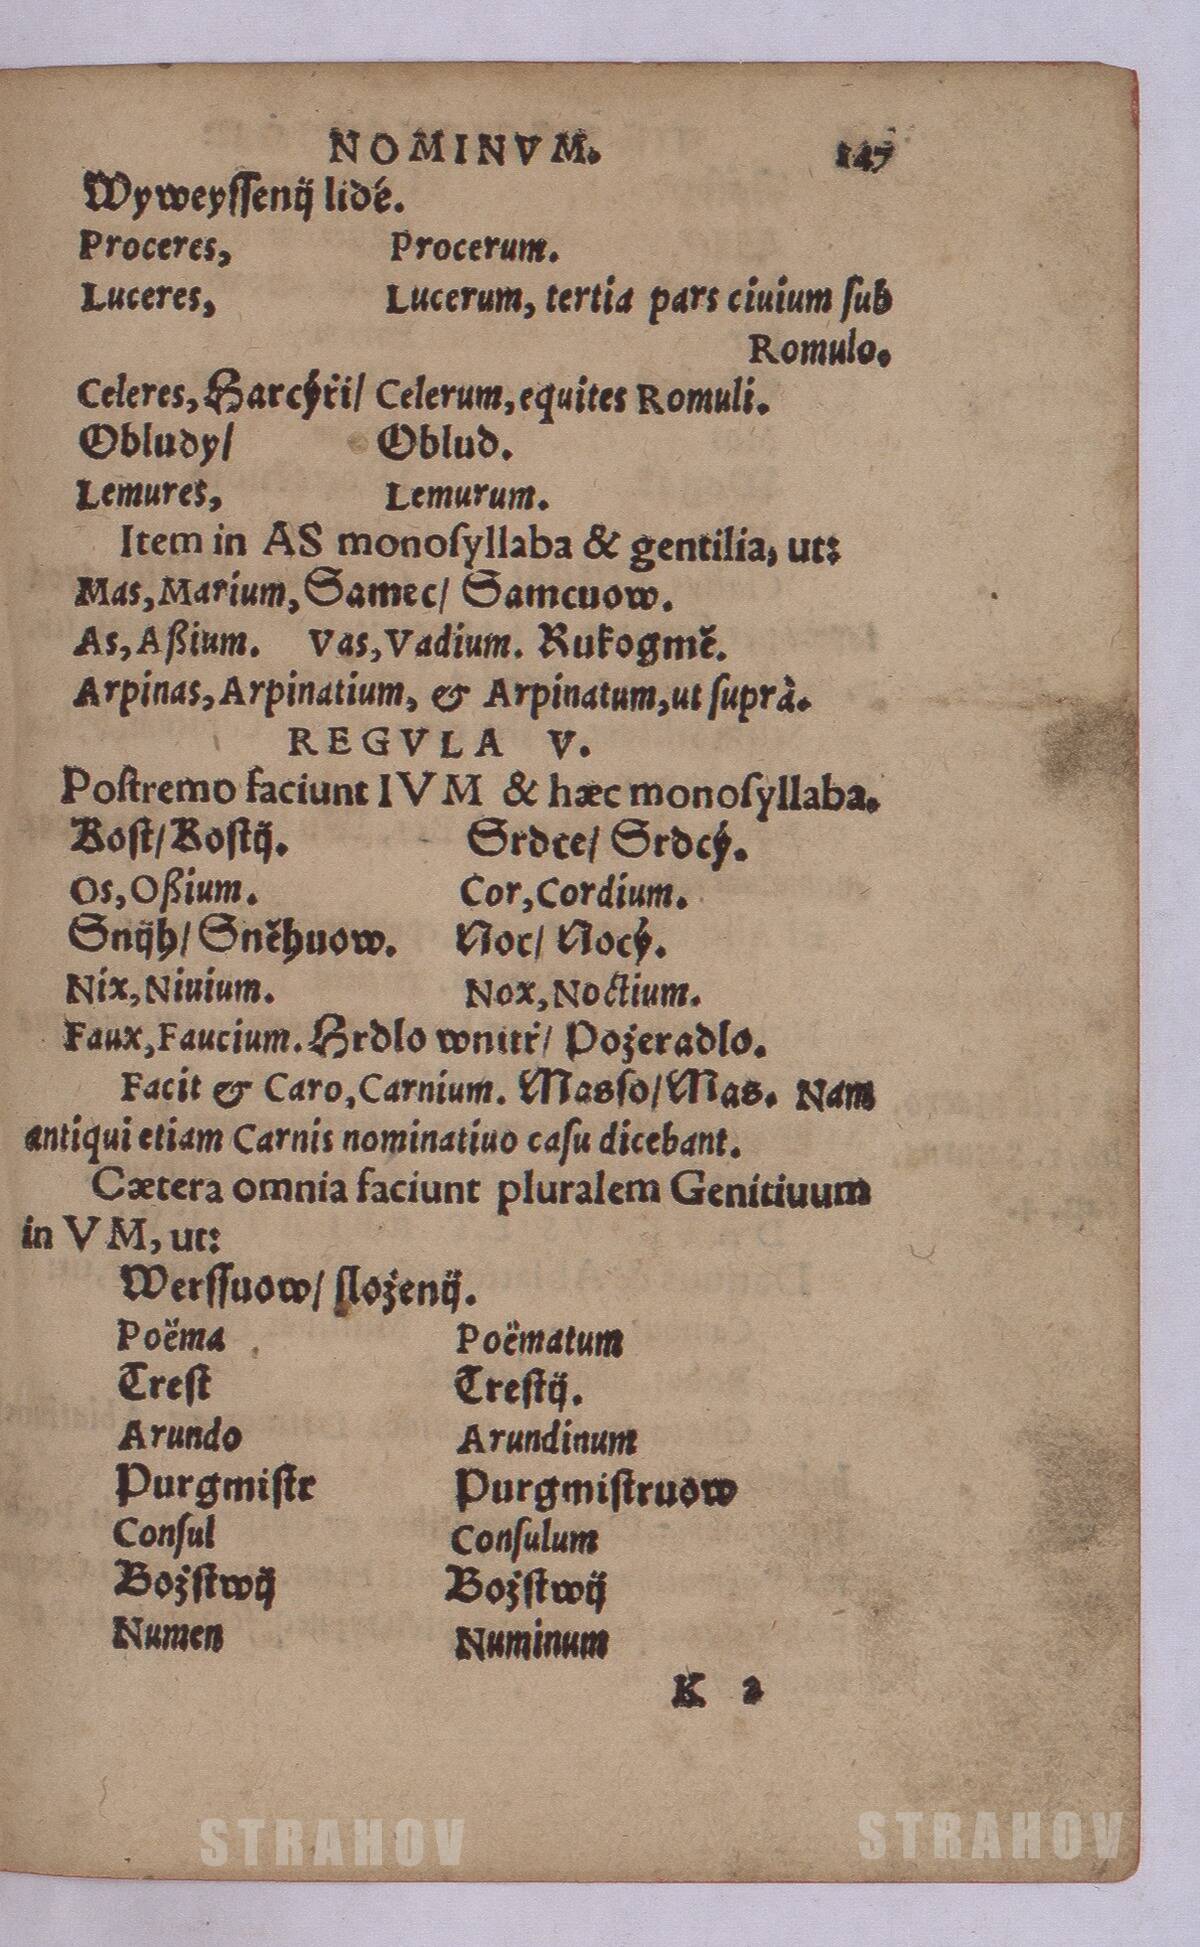 NOMINVM. 147
Wyweyſſenij lidé.
Proceres, Procerum.
Luceres, Lucerum, tertia pars ciuium ſub
Romulo.
Celeres, Harcýři/ Celerum, equites Romuli.
Obludy/ Oblud.
Lemures, Lemurum.
Item in AS monoſyllaba & gentilia, ut:
Mas, Marium, Samec/ Samcuow.
As, Aßium. Vas, Vadium. Rukogmě.
Arpinas, Arpinatium, & Arpinatum, ut ſuprà.
REGVLA V.
Poſtremo faciunt IVM & hæc monoſyllaba.
Koſt/ Koſtij. Srdce/ Srdcý.
Os, Oßium. Cor, Cordium.
Snijh/ Sněhuow. Noc/ Nocý.
Nix, Niuium. Nox, Noctium.
Faux, Faucium. Hrdlo wnitř/ Požeradlo.
Facit & Caro, Carnium. Maſſo/ Mas. Nam
antiqui etiam Carnis nominatiuo caſu dicebant.
Cætera omnia faciunt pluralem Genitiuum
in VM, ut:
Werſſuow/ ſloženij.
Poëma Poëmatum
Treſt Treſtij.
Arundo Arundinum
Purgmiſtr Purgmiſtruow
Conſul Conſulum
Božſtwij Božſtwij
Numen Numinum
K 2
STRAHOV STRAHOV